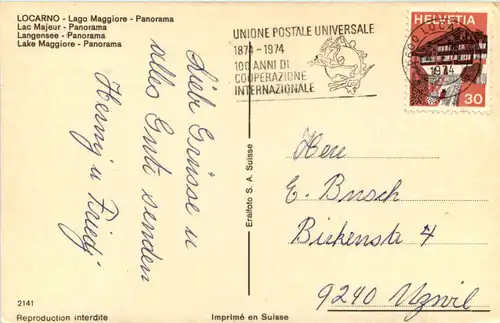 LOCARNO - Lago Maggiore - Panorama
Lac Majeur - Panorama
Langensee - Panorama
Lake Maggiore - Panorama
UNIONE POSTALE UNIVERSALE
1874-1974
100 ANNI DI
COOPERAZIONE
INTERNAZIONALE
6600 LOCA
1974
HELVETIA
30
Grüsse u
alles Gute senden
Henny u Friedj
Eralfoto S. A. Suisse
Herr
E. Busch
Birkenstr 4
9240 Uzwil
2141
Reproduction interdite
Imprimé en Suisse